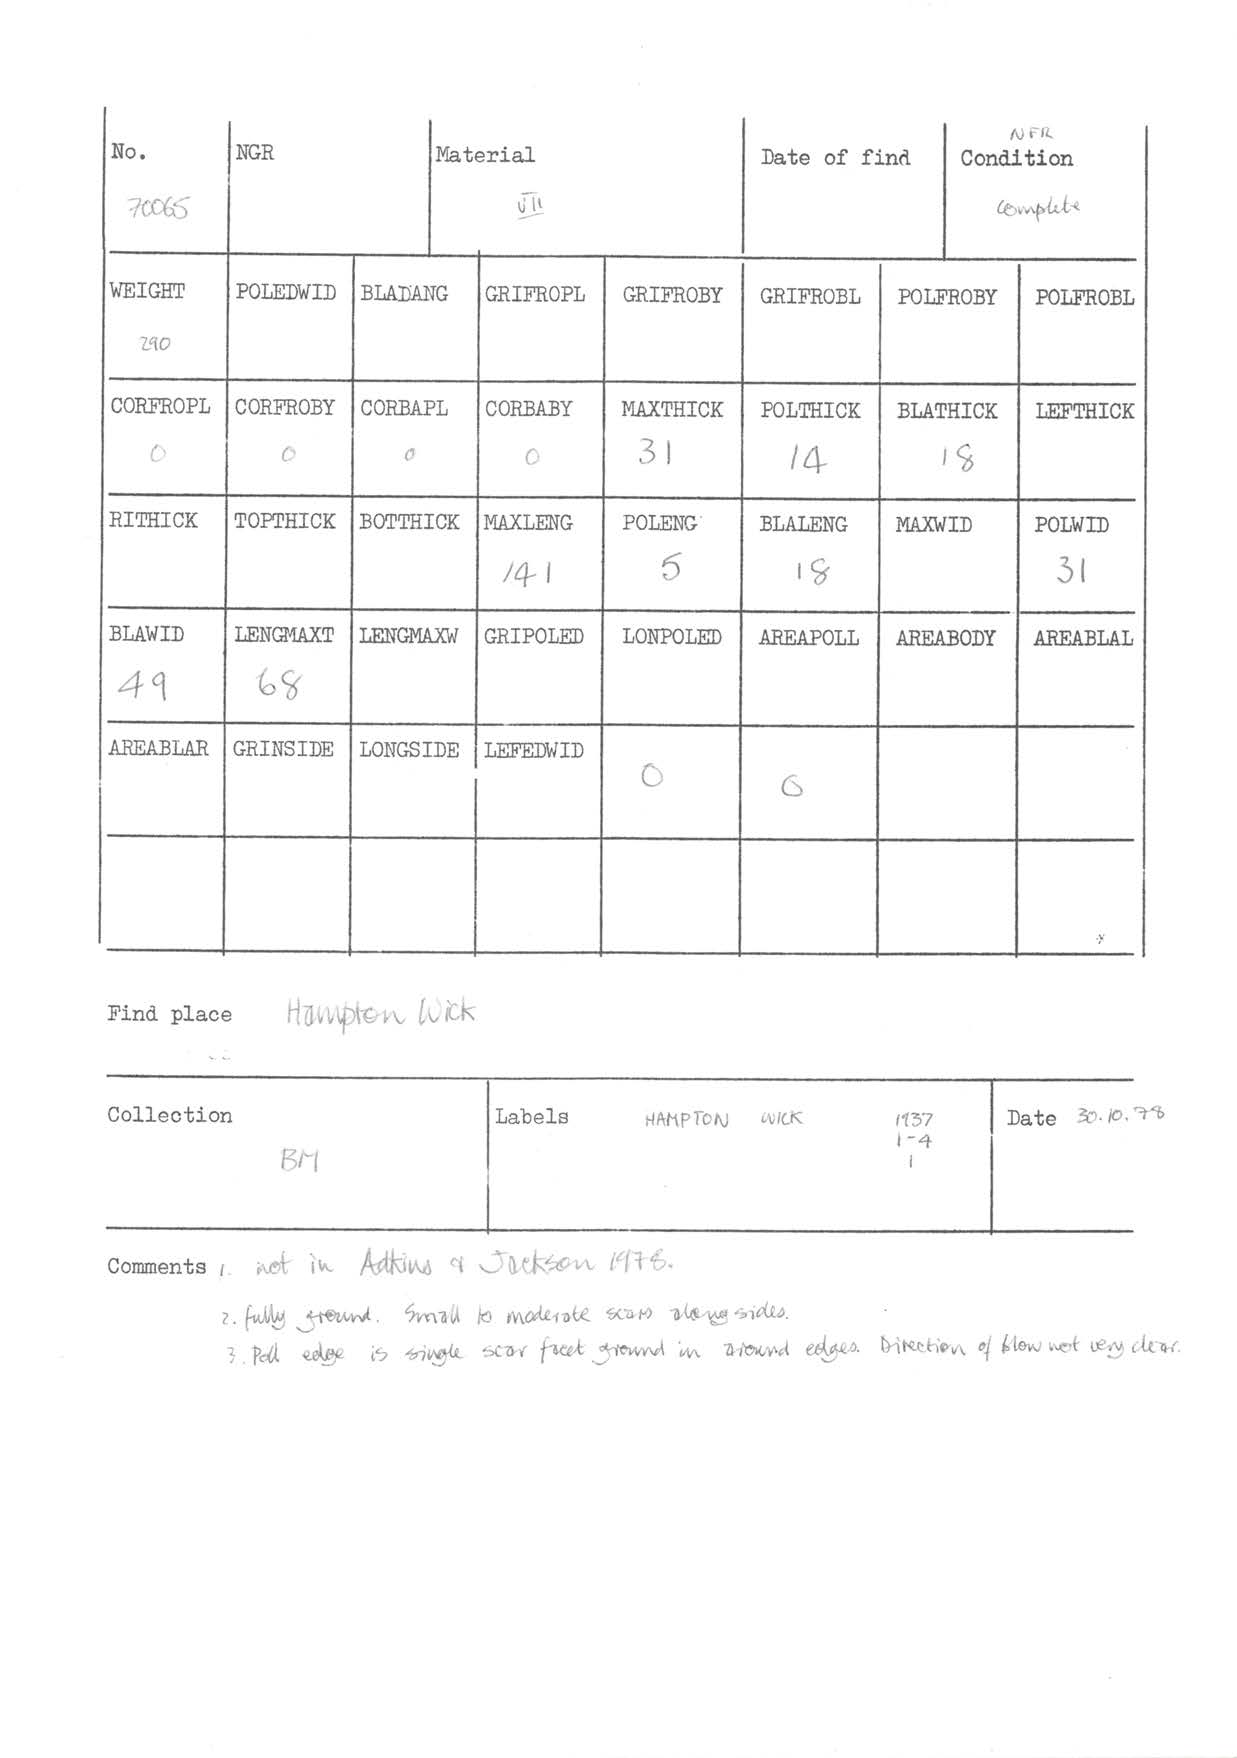 NFR
No. NGR Material Date of find Condition
70065 VII complete
WEIGHT POLEDWID BLADANG GRIFROPL GRIFROBY GRIFROBL POLFROBY POLFROBL
290
CORFROPL CORFROBY CORBAPL CORBABY MAXTHICK POLTHICK BLATHICK LEFTHICK
0 0 0 0 31 14 18
RITHICK TOPTHICK BOTTHICK MAXLENG POLENG BLALENG MAXWID POLWID
141 5 18 31
BLAWID LENGMAXT LENGMAXW GRIPOLED LONPOLED AREAPOLL AREABODY AREABLAL
49 68
AREABLAR GRINSIDE LONGSIDE LEFEDWID
0 0
Find place Hampton Wick
Collection Labels HAMPTON WICK 1937 Date 30.10.78
1-4
BM 1
Comments 1. not in Adkins & Jackson 1978.
2. fully ground. Small to moderate scars along sides.
3. Poll edge is single scar facet ground in around edges. Direction of blow not very clear.